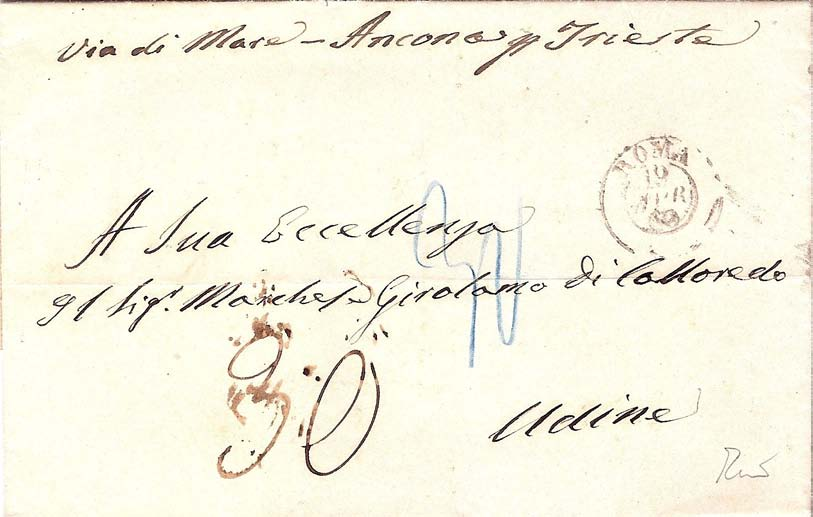 Via di Mare – Ancona p Trieste
ROMA
19
APR
A Sua Eccellenza
Il Sigr. Marchese Girolamo Di Colloredo
30
Udine